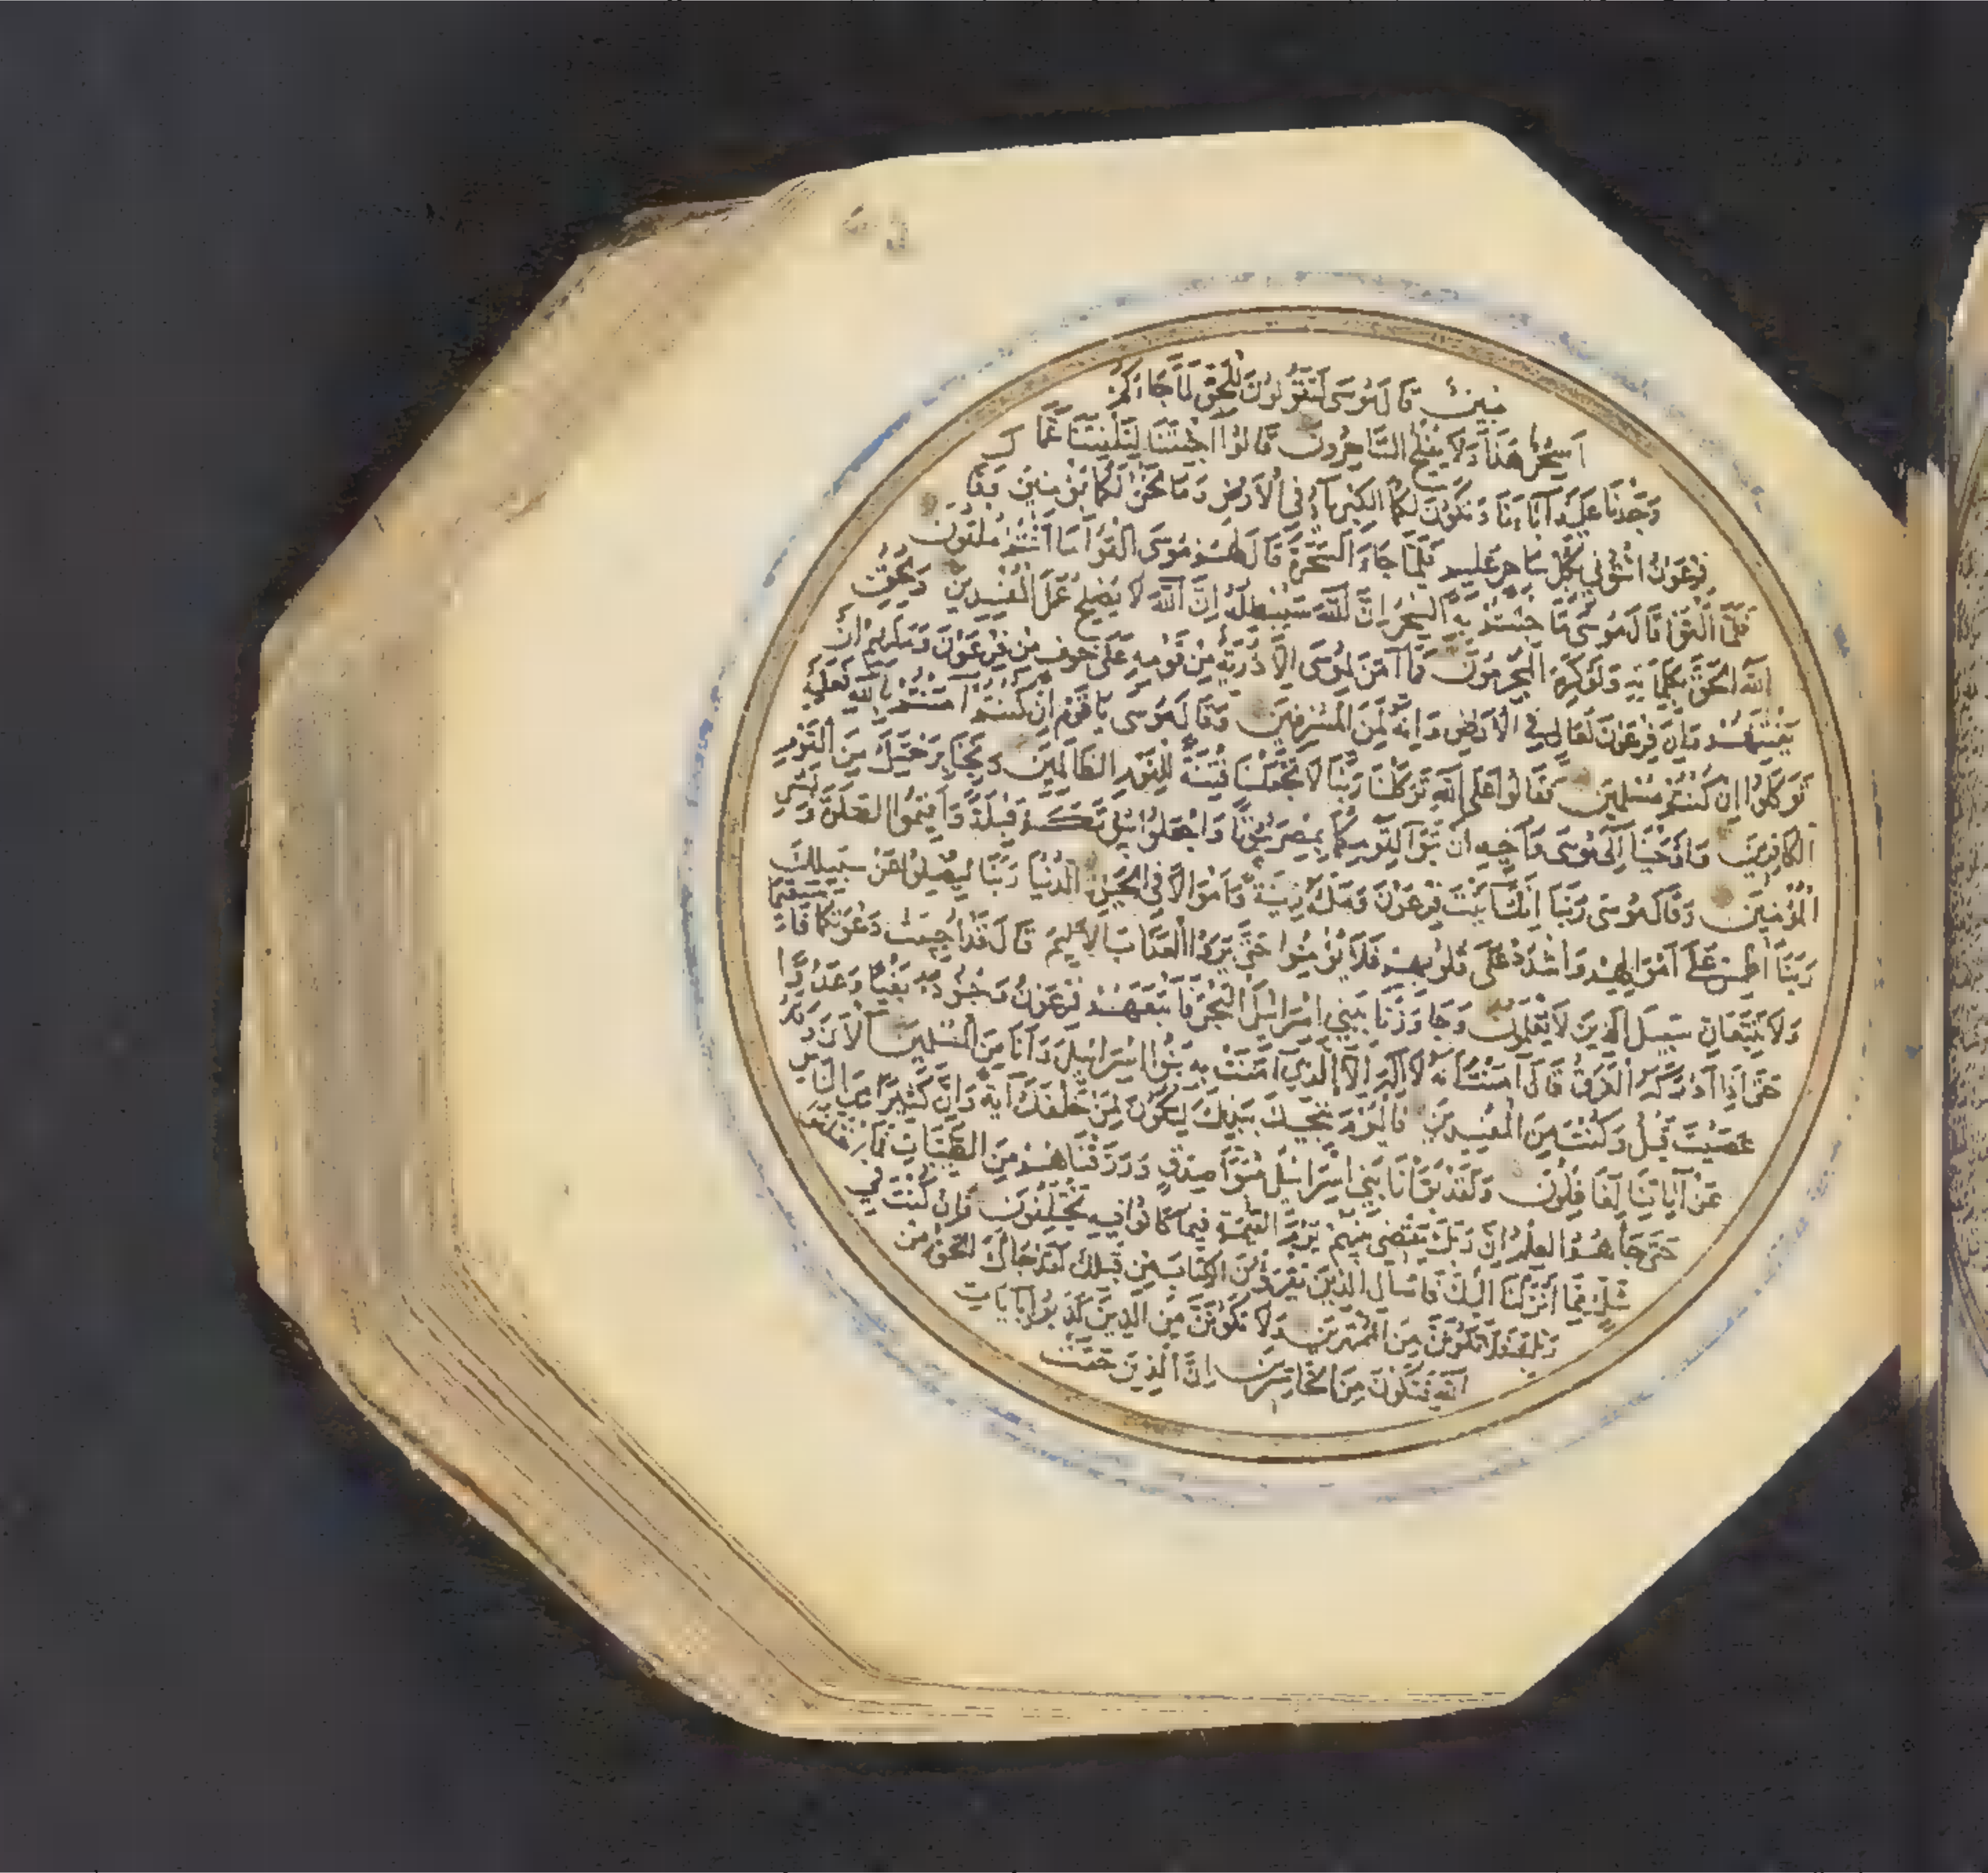 مبين قال موسى اتقولون للحق لما جاءكم
اسحر هذا ولا يفلح الساحرون قالوا اجئتنا لتلفتنا عما
وجدنا عليه آباءنا وتكون لكما الكبرياء في الارض وما نحن لكما بمؤمنين وقال
فرعون ائتوني بكل ساحر عليم فلما جاء السحرة قال لهم موسى القوا ما انتم ملقون
فلما القوا قال موسى ما جئتم به السحر ان الله سيبطله ان الله لا يصلح عمل المفسدين ويحق
الله الحق بكلماته ولو كره المجرمون فما آمن لموسى الا ذرية من قومه على خوف من فرعون وملئهم ان
يفتنهم وان فرعون لعال في الارض وانه لمن المسرفين وقال موسى يا قوم ان كنتم آمنتم بالله فعليه
توكلوا ان كنتم مسلمين فقالوا على الله توكلنا ربنا لا تجعلنا فتنة للقوم الظالمين ونجنا برحمتك من القوم
الكافرين واوحينا الى موسى واخيه ان تبوآ لقومكما بمصر بيوتا واجعلوا بيوتكم قبلة واقيموا الصلوة وبشر
المؤمنين وقال موسى ربنا انك آتيت فرعون وملأه زينة واموالا في الحيوة الدنيا ربنا ليضلوا عن سبيلك
ربنا اطمس على اموالهم واشدد على قلوبهم فلا يؤمنوا حتى يروا العذاب الاليم قال قد اجيبت دعوتكما فاستقيما
ولا تتبعان سبيل الذين لا يعلمون وجاوزنا ببني اسرائيل البحر فاتبعهم فرعون وجنوده بغيا وعدوا
حتى اذا ادركه الغرق قال آمنت انه لا اله الا الذي آمنت به بنوا اسرائيل وانا من المسلمين آلآن وقد
عصيت قبل وكنت من المفسدين فاليوم ننجيك ببدنك لتكون لمن خلفك آية وان كثيرا من الناس
عن آياتنا لغافلون ولقد بوأنا بني اسرائيل مبوأ صدق ورزقناهم من الطيبات فما اختلفوا
حتى جاءهم العلم ان ربك يقضي بينهم يوم القيمة فيما كانوا فيه يختلفون فان كنت في
شك مما انزلنا اليك فاسأل الذين يقرؤن الكتاب من قبلك لقد جاءك الحق من
ربك فلا تكونن من الممترين ولا تكونن من الذين كذبوا بآيات
الله فتكون من الخاسرين ان الذين حقت